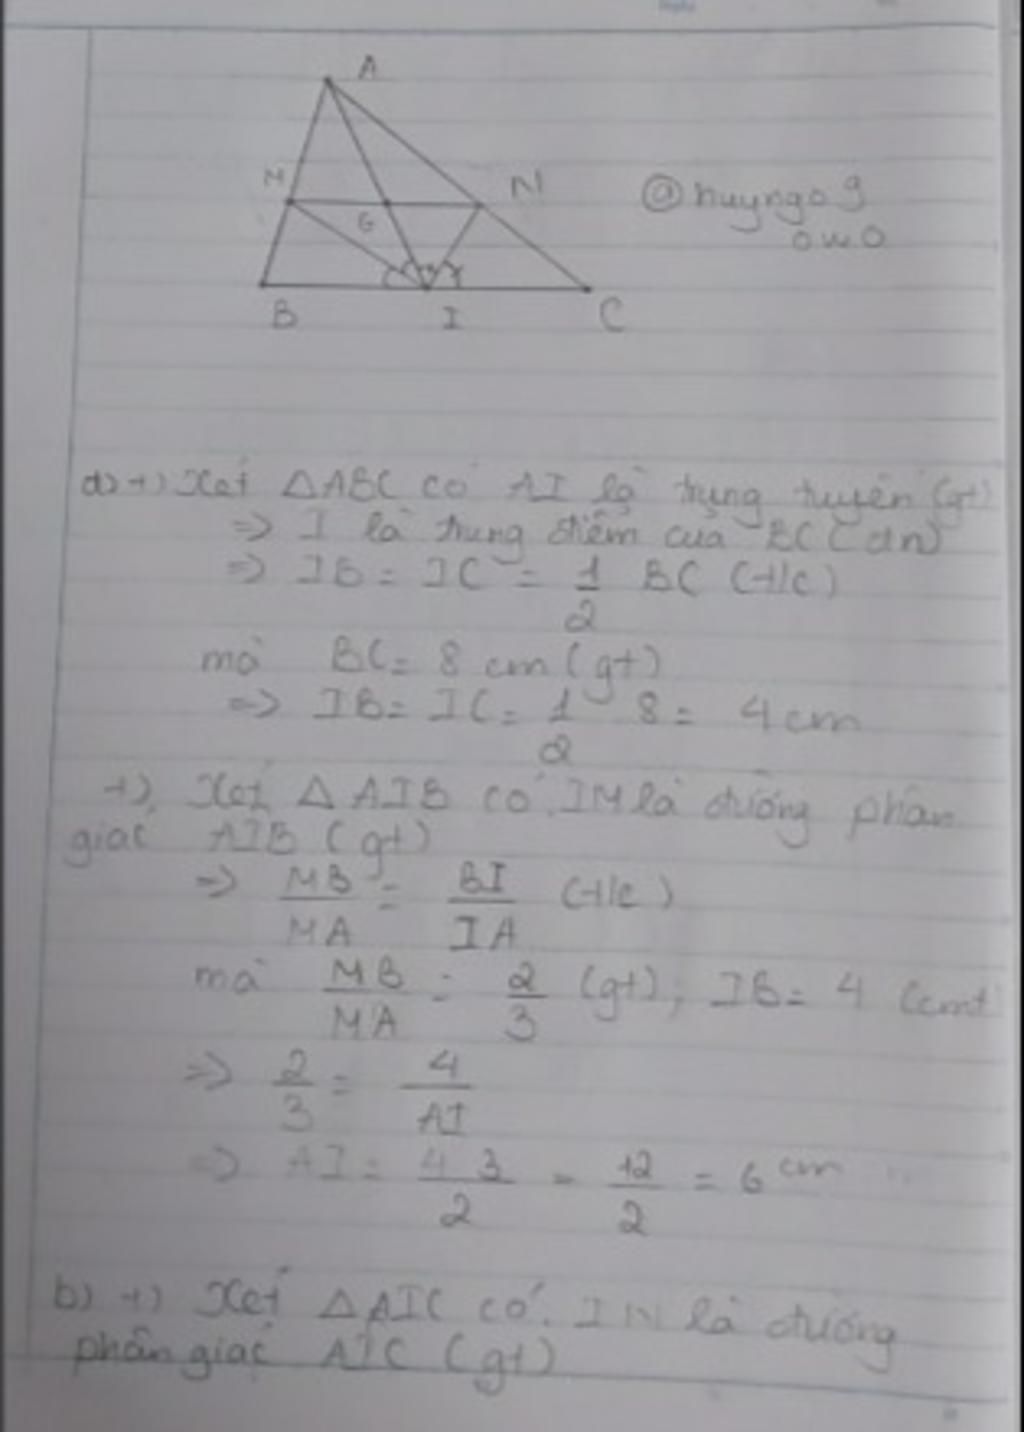 A
M
N
G
@huyngo9
owo
B
I
C
a) +) Xét △ABC có AI là trung tuyến (gt)
=> I là trung điểm của BC (đn)
=> IB = IC = 1/2 BC (t/c)
mà BC = 8 cm (gt)
=> IB = IC = 1/2 8 = 4 cm
+) Xét △AIB có IM là đường phân
giác AIB (gt)
=> MB/MA = BI/IA (t/c)
mà MB/MA = 2/3 (gt); IB = 4 (cmt
=> 2/3 = 4/AI
=> AI = 4 3/2 = 12/2 = 6 cm
b) +) Xét △AIC có IN là đường
phân giác AIC (gt)